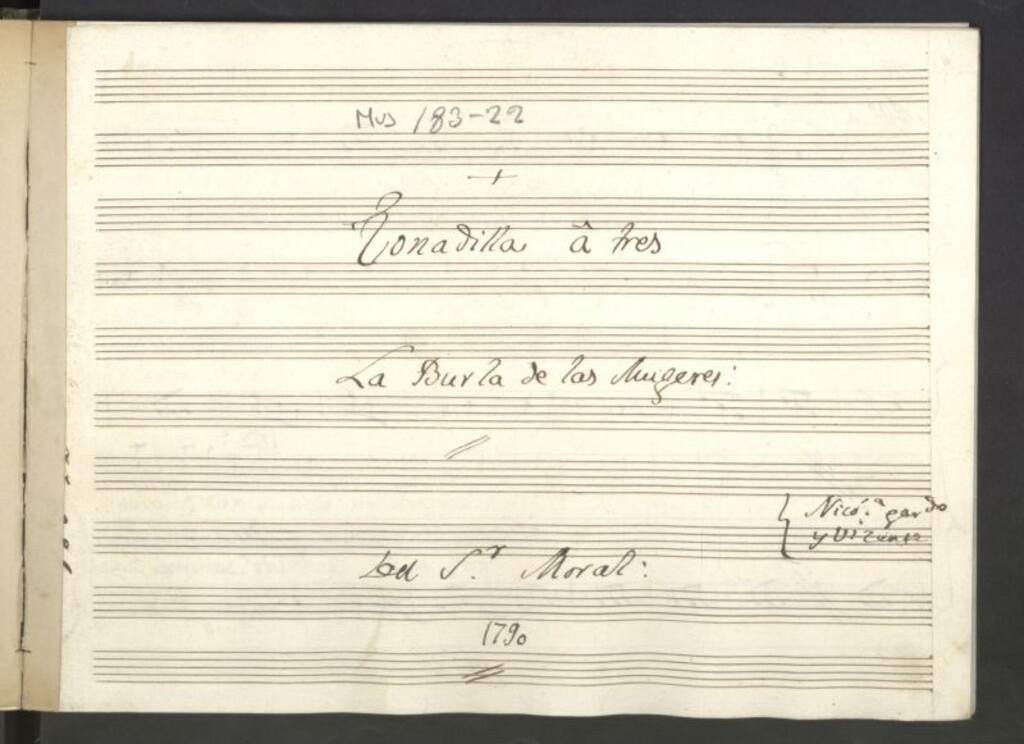 Mus 183-22
+
Tonadilla â tres
La Burla de las Mugeres:
Nicó.ª gardo
y Vizenta
Del S.r Moral:
1790